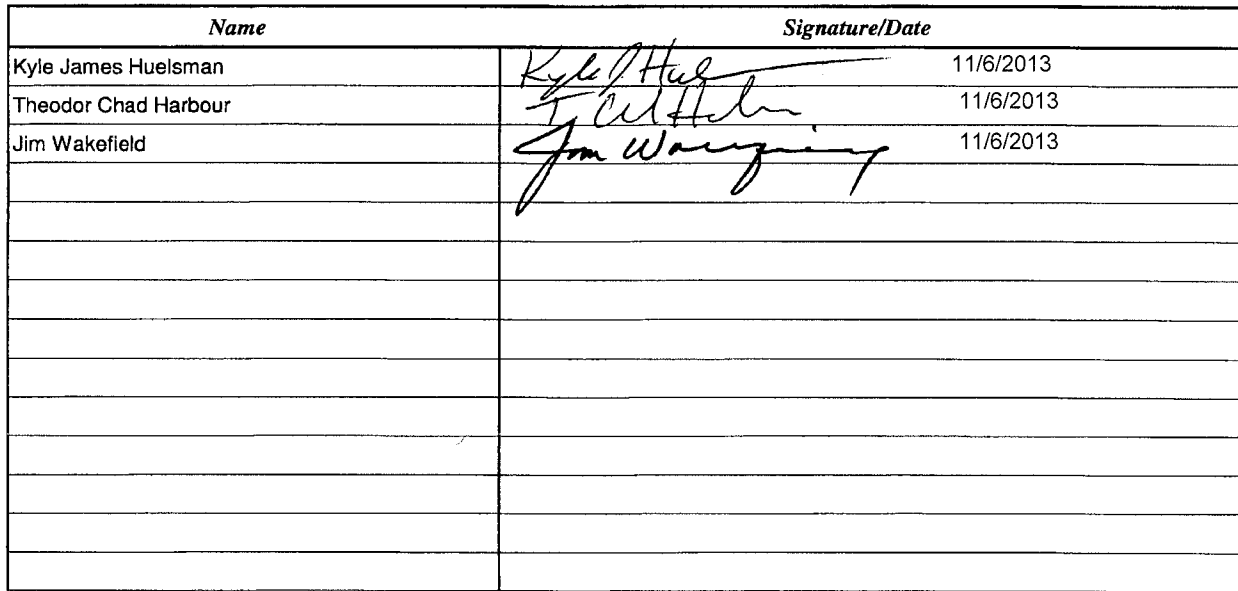 Name Signature/Date
Kyle James Huelsman Kyle J Huls 11/6/2013
Theodor Chad Harbour 11/6/2013
Jim Wakefield Jim 11/6/2013